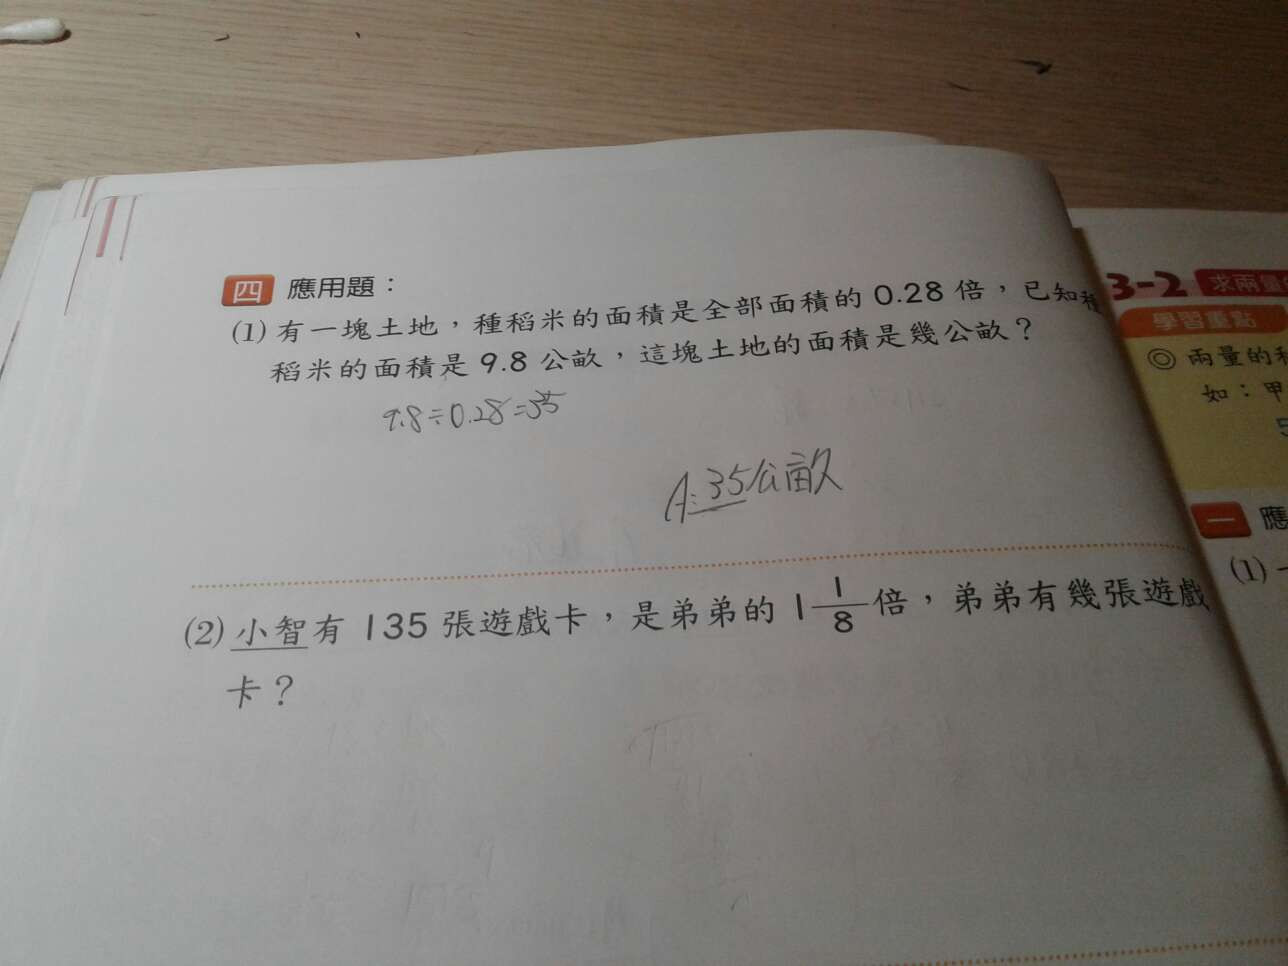 四 應用題：
(1) 有一塊土地，種稻米的面積是全部面積的 0.28 倍，已知種
稻米的面積是 9.8 公畝，這塊土地的面積是幾公畝？
9.8÷0.28=35
A:35公畝
(2) 小智有 135 張遊戲卡，是弟弟的 1 1/8 倍，弟弟有幾張遊戲
卡？
3-2 求兩量
學習重點
◎ 兩量的
如：甲
5
一 應
(1) 一